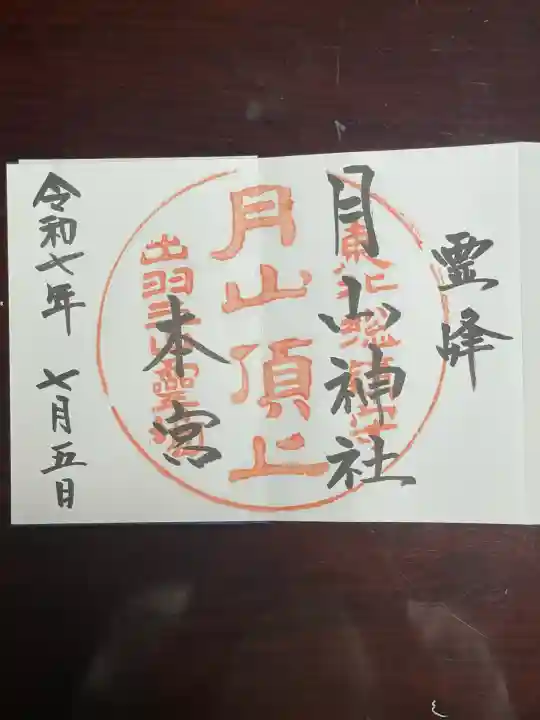 霊峰
月山神社
本宮
月山頂上
出羽三山霊場
令和七年 七月五日